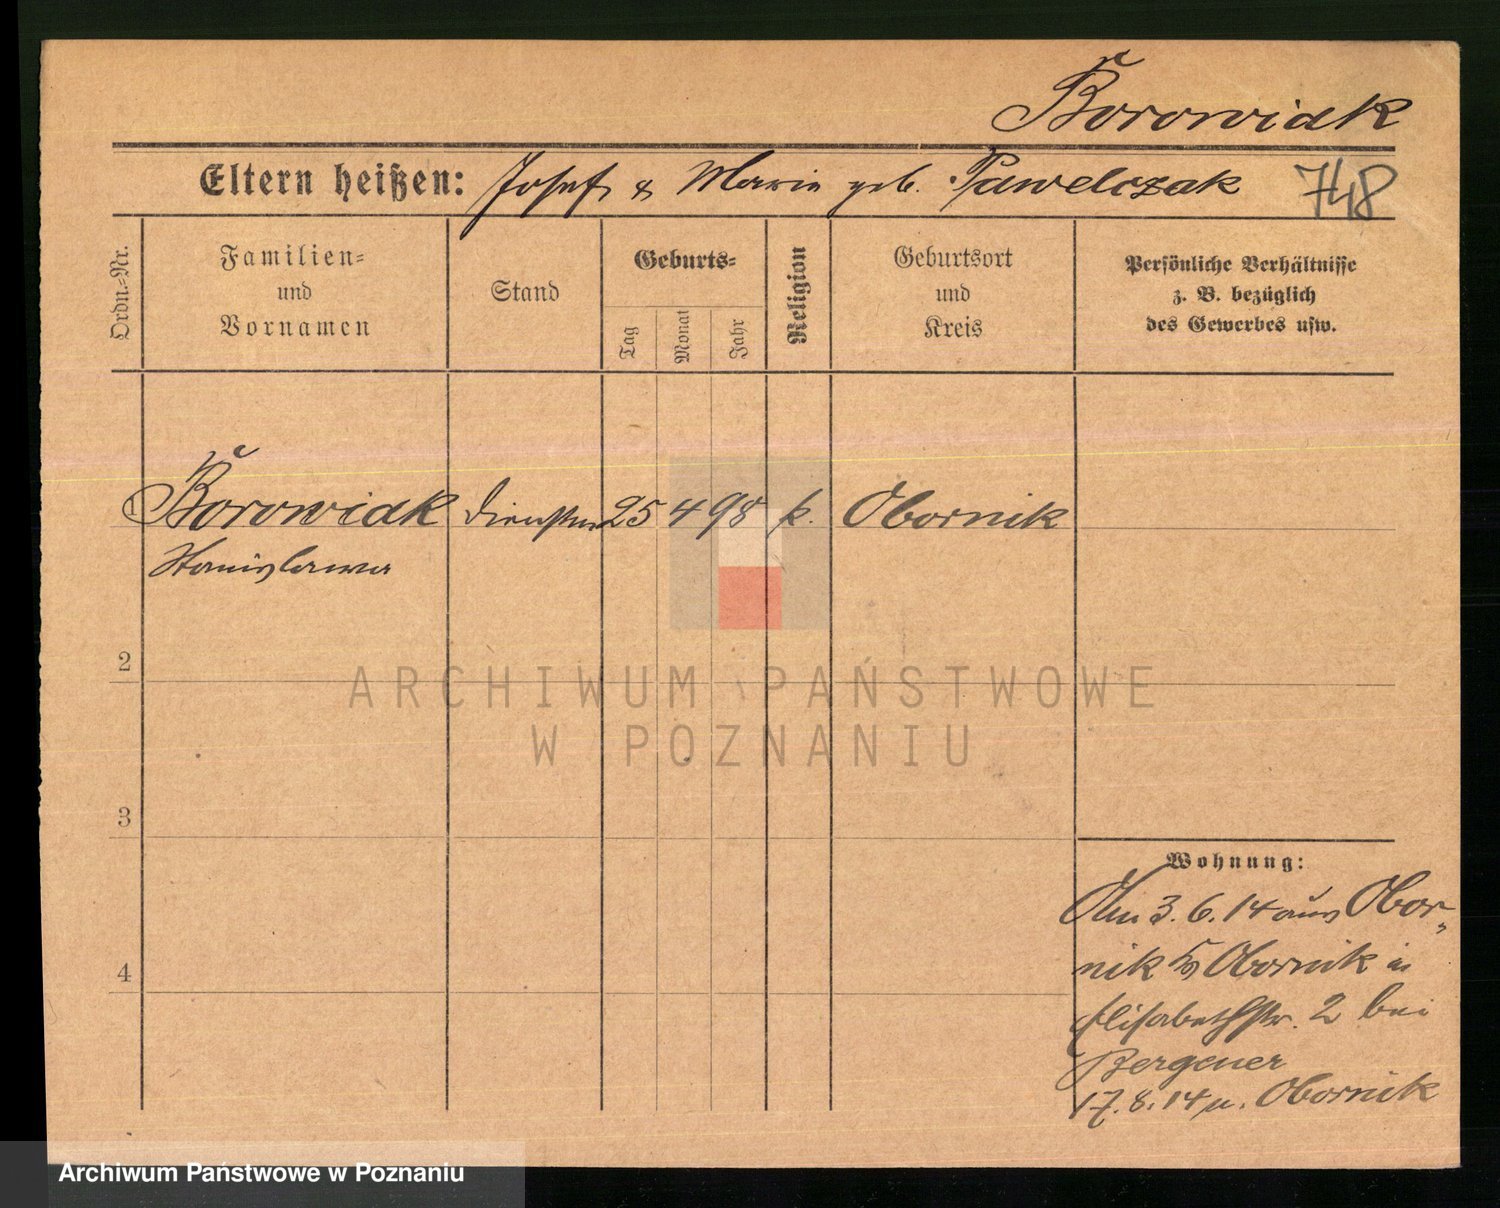 Borowiak
Eltern heißen: Josef & Maria geb. Pawelczak 748
Ordn.-Nr.
Familien- und Vornamen
Stand
Geburts-
Tag Monat Jahr
Religion
Geburtsort und Kreis
Persönliche Verhältnisse
z. B. bezüglich
des Gewerbes usw.
1 Borowiak 25 4 98 k. Obornik
Stanislawa
2
ARCHIWUM PAŃSTWOWE
W POZNANIU
3
Wohnung:
3.6.14 aus Obor-
nik Obornik
4
Elisabethstr. 2 bei
Bergener
17.8.14 n. Obornik
Archiwum Państwowe w Poznaniu